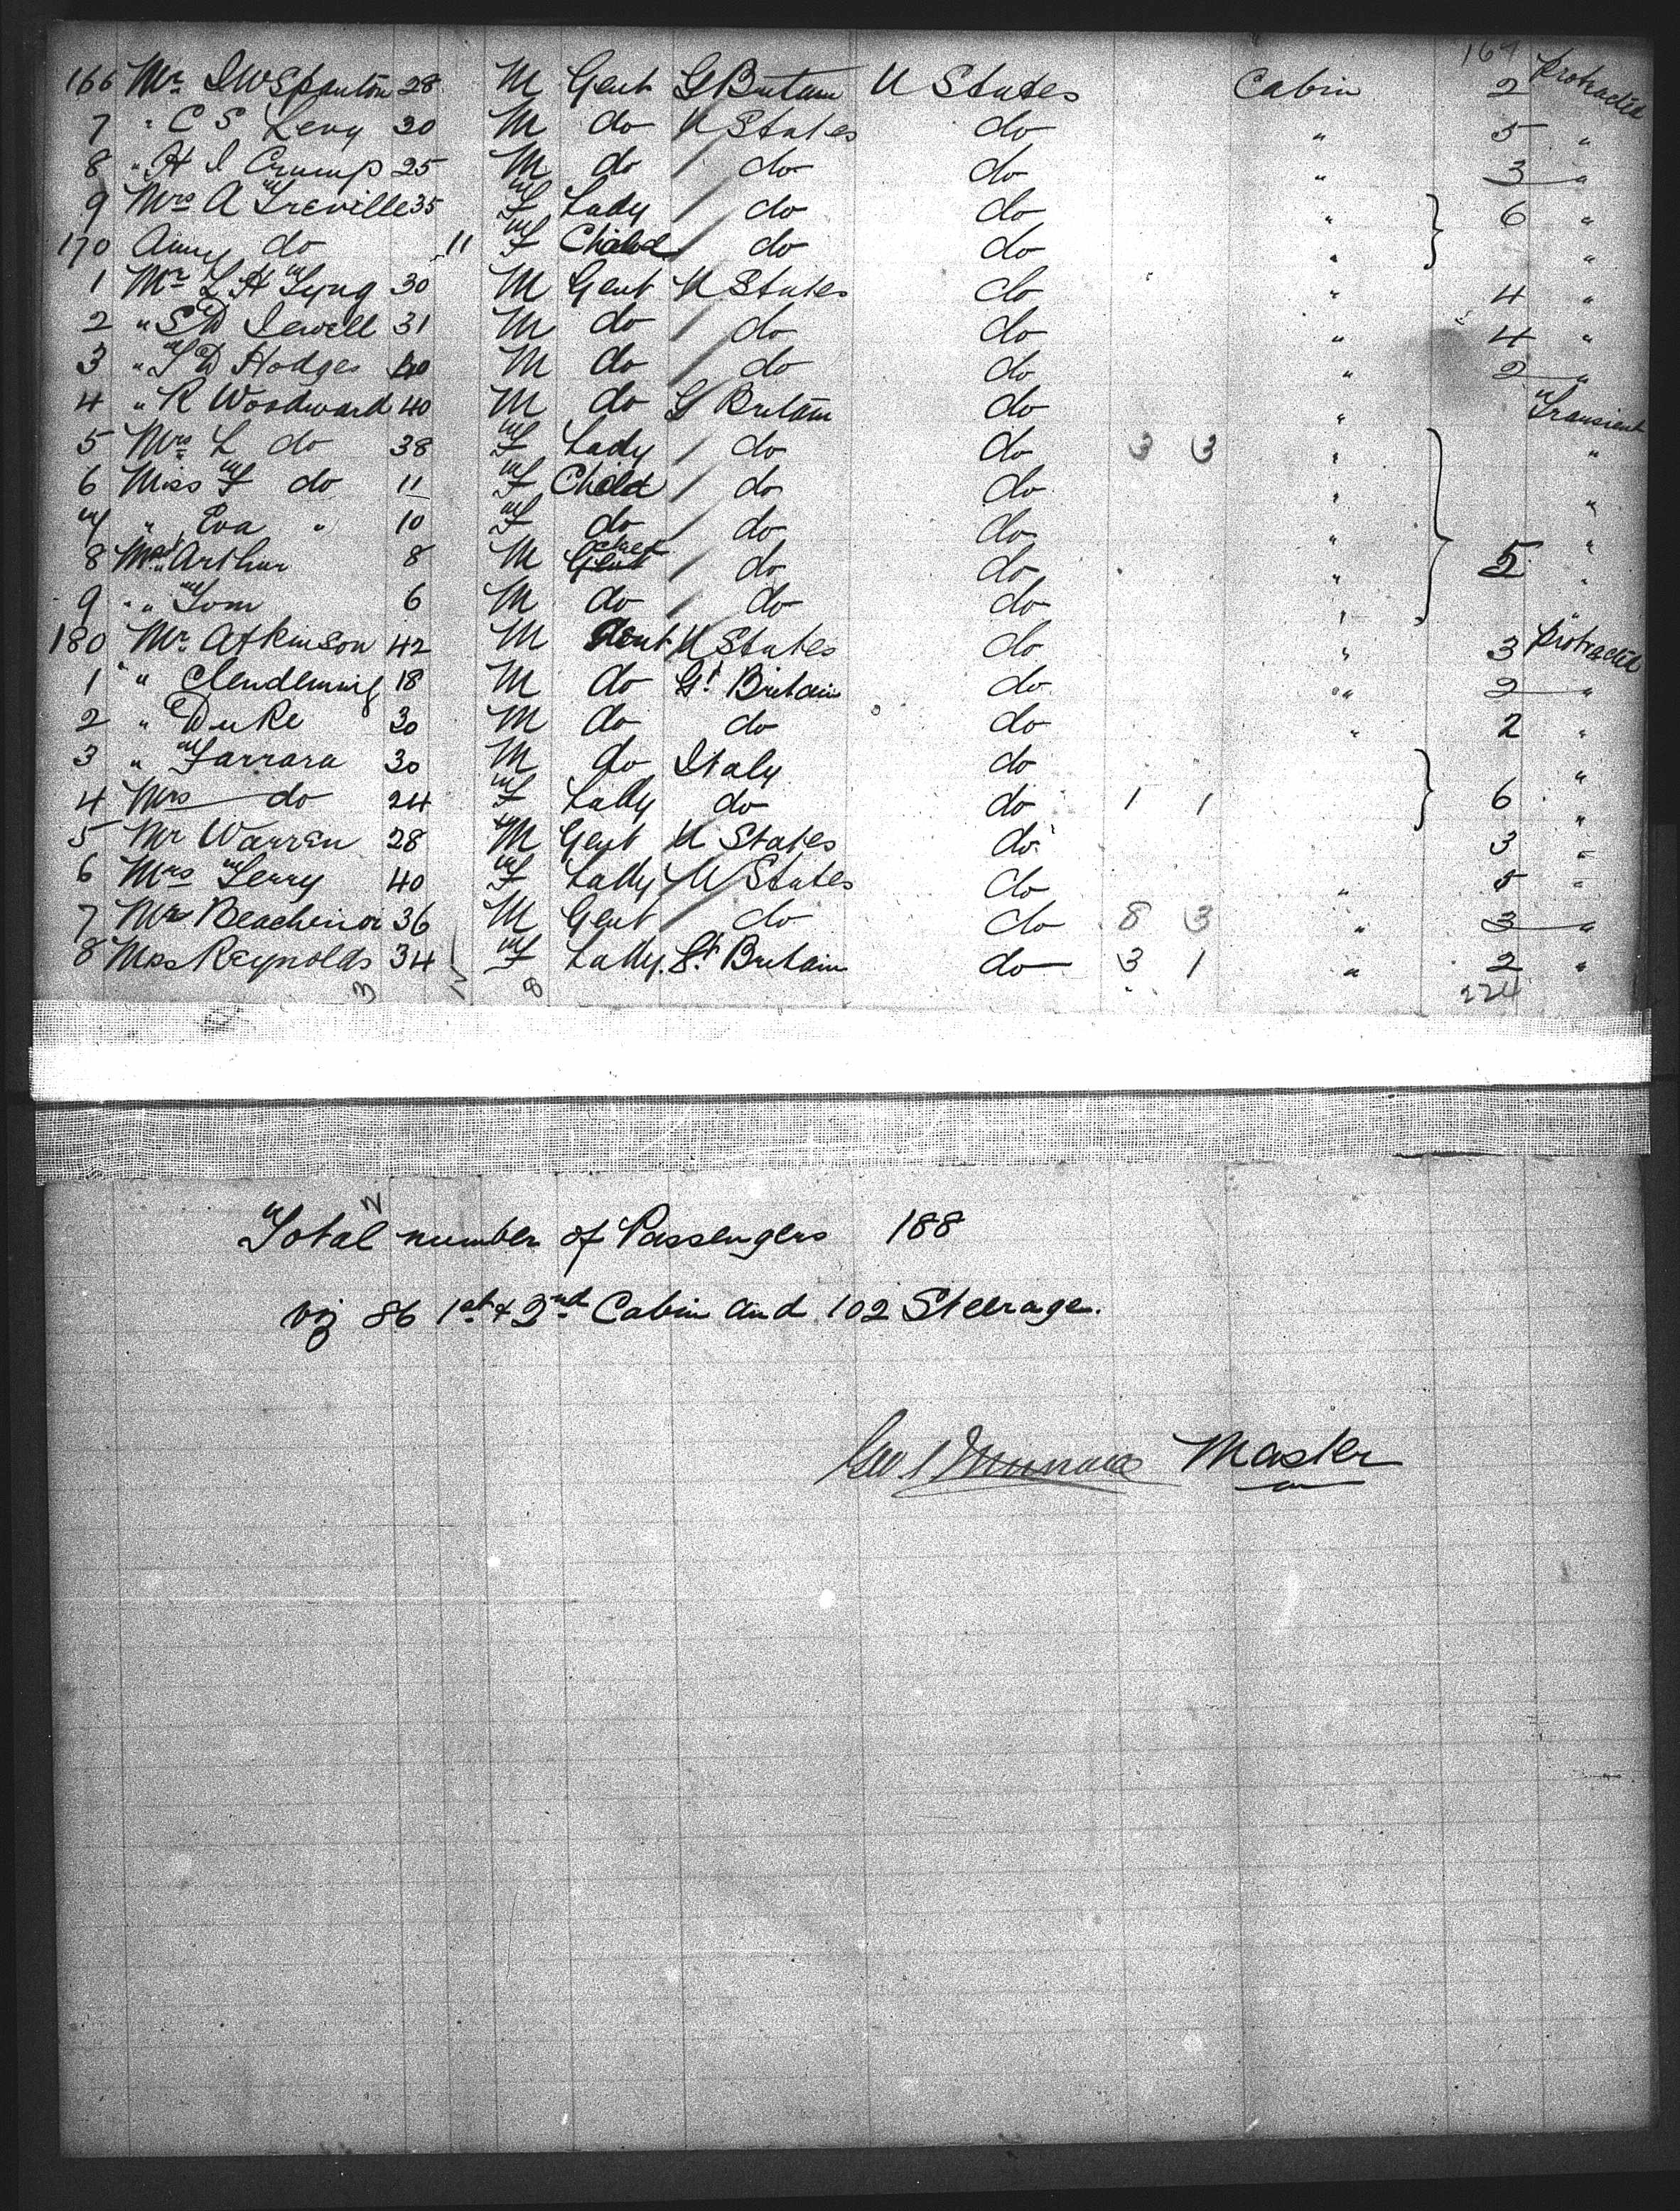 164
166 Mr I W Spanton 28 M Gent G Britain U States Cabin 2 Protracted
7 " C S Levy 30 M do U States do " 5 "
8 " H I Crump 25 M do do do " 3 "
9 Mrs A Treville 35 F Lady do do " 6 "
170 Amy do 11 F Child do do " "
1 Mr L H Tyng 30 M Gent U States do " 4 "
2 " S D Jewell 31 M do do do " 4 "
3 " T D Hodges 40 M do do do " 2 "
4 " R Woodward 40 M do G Britain do " Transient
5 Mrs L do 38 F Lady do do 3 3 " "
6 Miss F do 11 F Child do do " "
7 " Eva " 10 F do do do " "
8 Mr Arthur 8 M Gent do do " 5 "
9 " Tom 6 M do do do " "
180 Mr Atkinson 42 M Gent U States do " 3 Protracted
1 " Clendening 18 M do Gt Britain do " 2 "
2 " Duke 30 M do do do " 2 "
3 " Farrara 30 M do Italy do "
4 Mrs do 24 F Lady do do 1 1 6 "
5 Mr Warren 28 M Gent U States do 3 "
6 Mrs Terry 40 F Lady U States do " 5 "
7 Mr 36 M Gent do do 8 3 " 3 "
8 Miss Reynolds 34 F Lady Gt Britain do 3 1 " 2 "
3 12 8 224
Total number of Passengers 188
viz 86 1st & 2nd Cabin and 102 Steerage.
Master